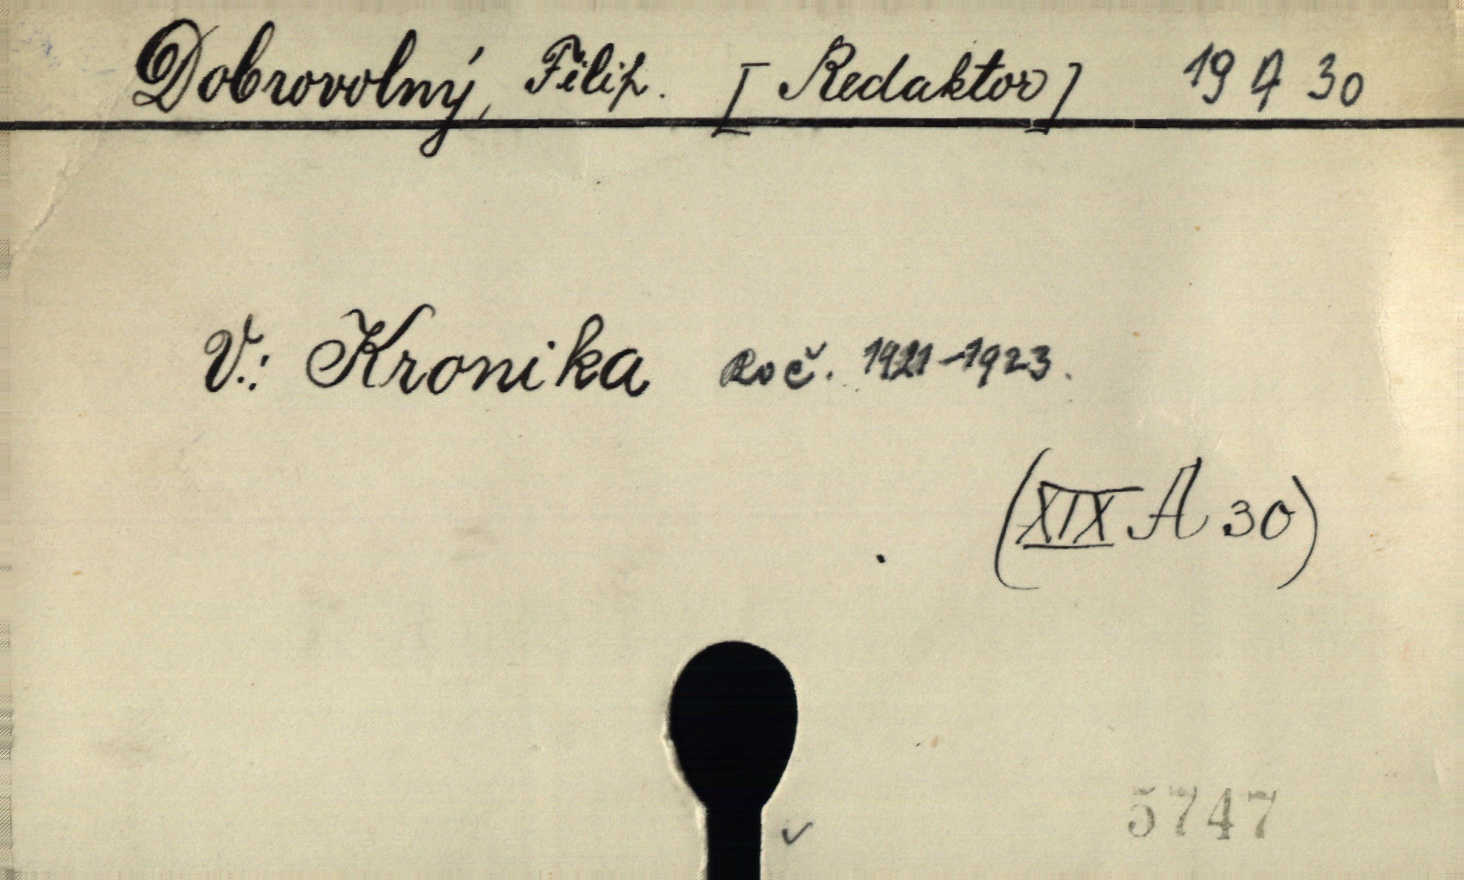 Dobrovolný, Filip. [Redaktor] 19 A 30
V.: Kronika Roč. 1921-1923.
(XIX A 30)
5747